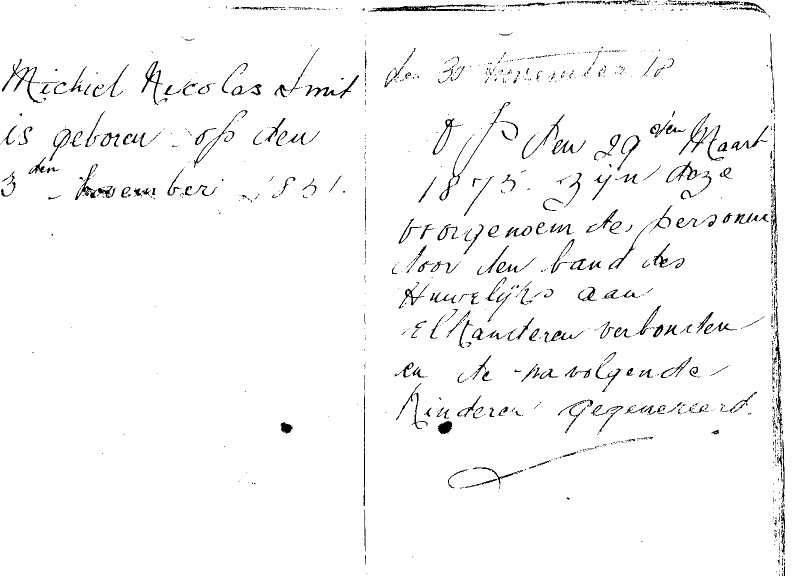 Michiel Nicolas Smit
is geboren op den
3 den November 1851.
den 30 November 18
Op den 29 sten Maart
1875. zijn deze
voorgenoemdes personen
door den band des
Huwelijks aan
Elkanderen verbonden
en de navolgende
Kinderen gegenereerd.